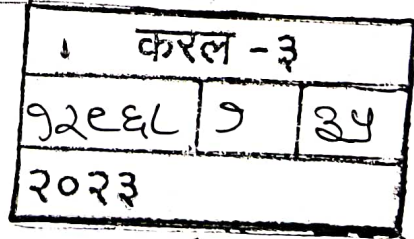 करल - ३
१२९६८ १ ३५
२०२३